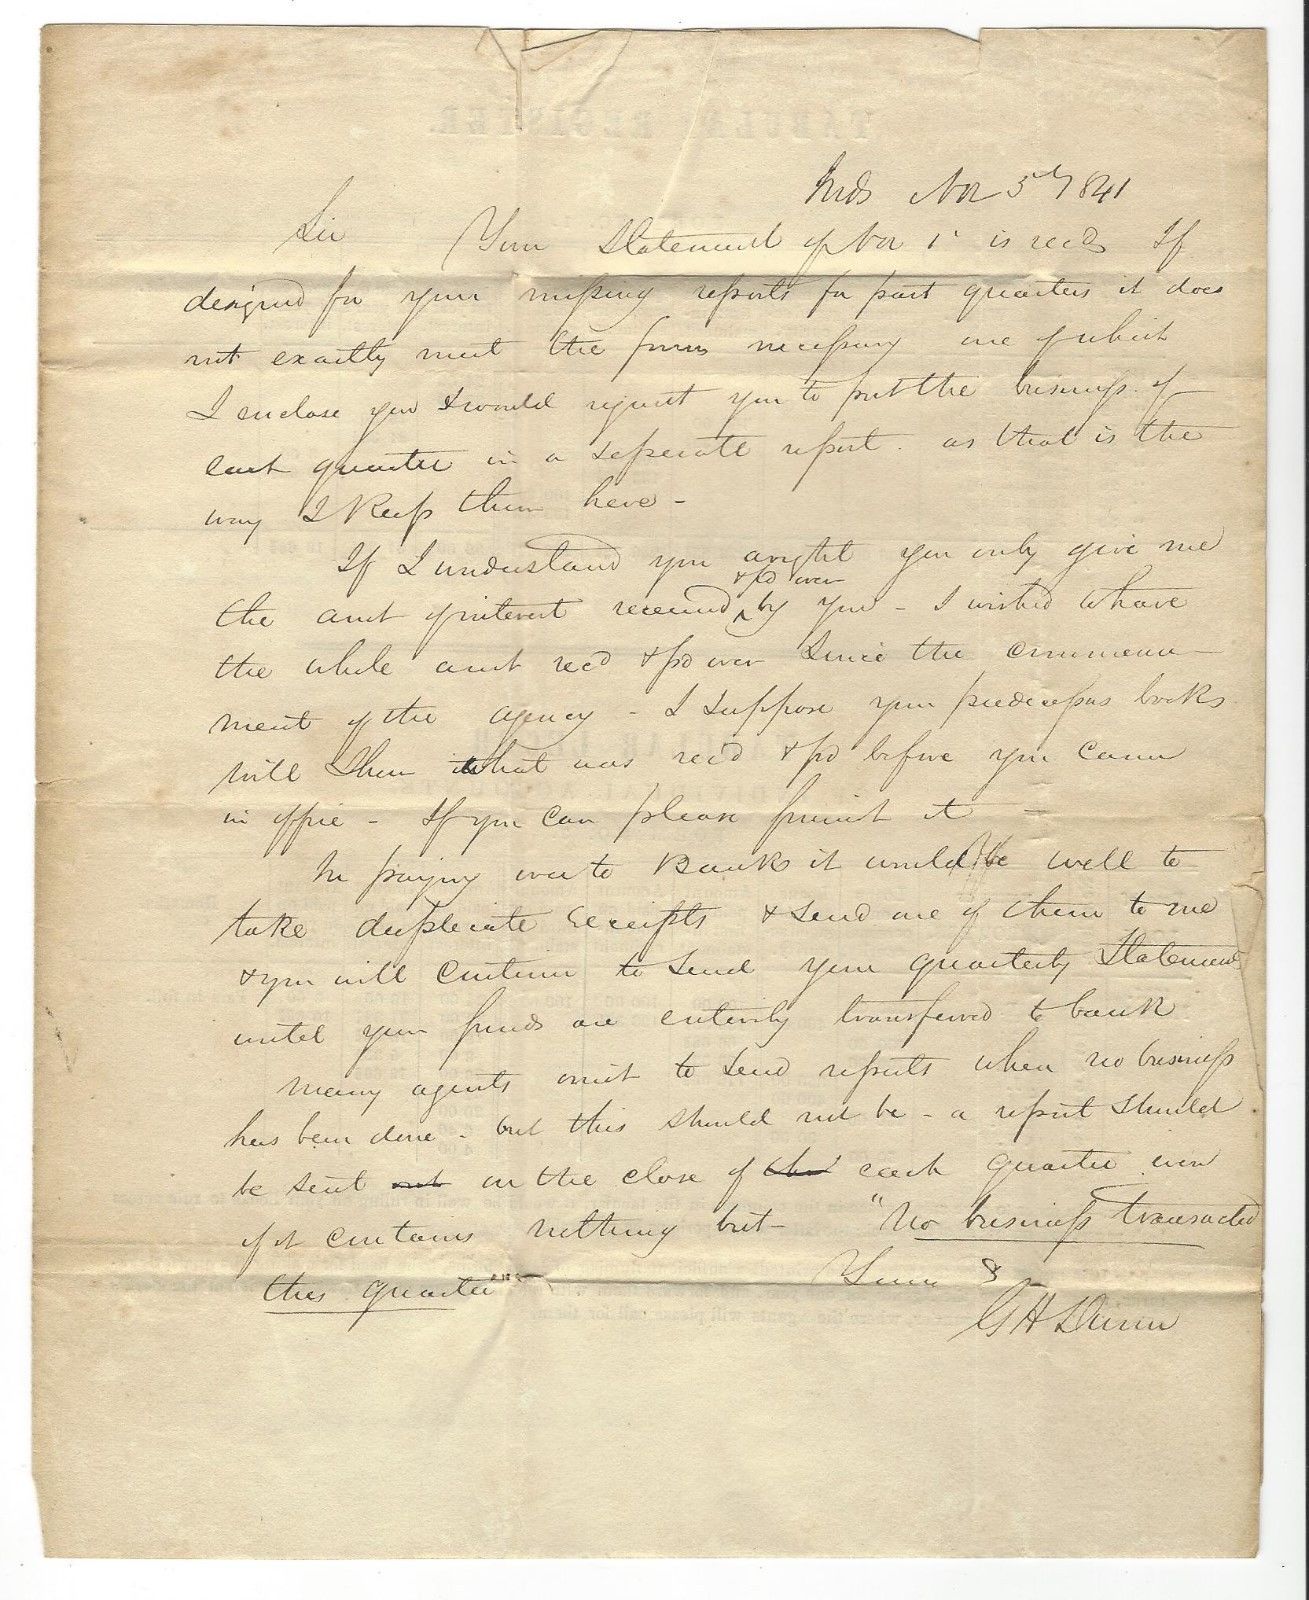 Inds Nov 5th 1841
Sir Your Statement of Nov 1st is recd If
designed for your missing reports for past quarters it does
not exactly meet the forms necessary one of which
I enclose you & would request you to put the business of
each quarter in a seperate report. as that is the
way I keep them here -
If I understand you aright you only give me
& pd over
the amt of interest received by you - I wished to have
the whole amt recd & pd over since the commence
ment of the agency - I suppose your predecessors books
will shew what was recd & pd before you came
in office - If you can please furnish it -
In paying over to Bank it would be well to
take duplicate receipts & send one of them to me
& you will continue to send your quarterly Statements
until your funds are entirely transferred to bank
Many agents omit to send reports when no business
has been done - but this should not be - a report should
be sent out on the close of each quarter even
if it contains nothing but - "No business transacted
this quarter"
Yours &
G H Dunn
TABULAR REGISTER.